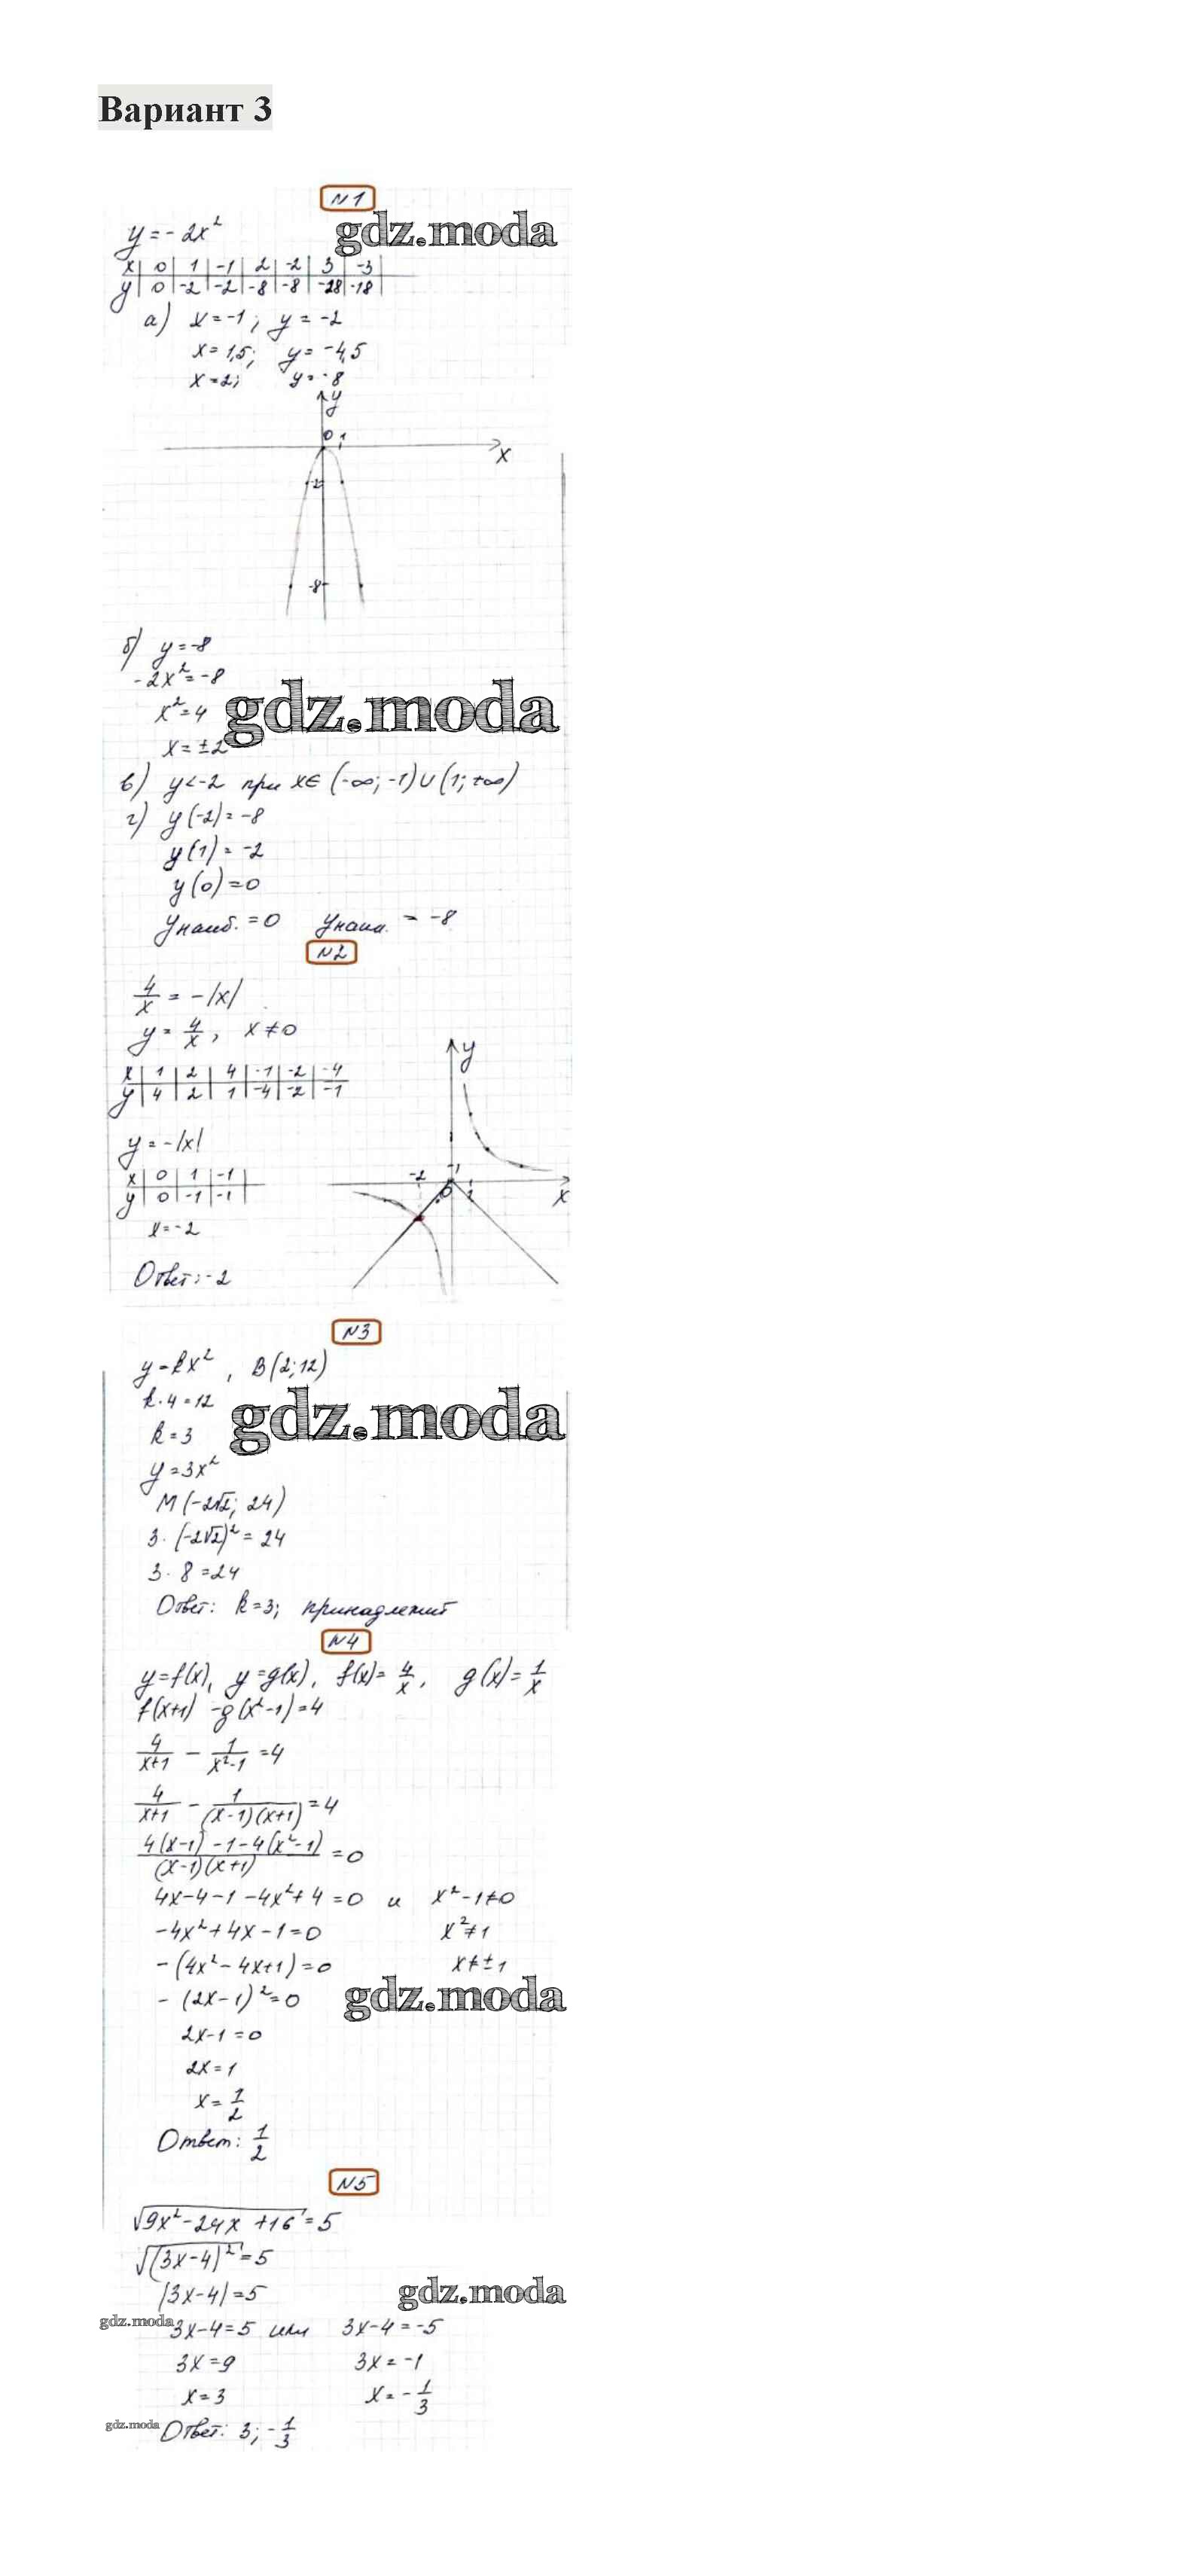 Вариант 3
N1
gdz.moda
y = -2x²
x | 0 | 1 | -1 | 2 | -2 | 3 | -3
y | 0 | -2 | -2 | -8 | -8 | -28 | -18 |
а) x = -1; y = -2
x = 1,5; y = -4,5
x = 2; y = -8
y
0 1
x
-2
-8
б) y = -8
-2x² = -8
x² = 4
gdz.moda
x = ±2
в) y < -2 при x ∈ (-∞; -1) ∪ (1; +∞)
г) y(-2) = -8
y(1) = -2
y(0) = 0
yнаиб. = 0 yнаим. = -8
N2
4/x = -|x|
y = 4/x, x ≠ 0
x | 1 | 2 | 4 | -1 | -2 | -4
y | 4 | 2 | 1 | -4 | -2 | -1
y
y = -|x|
x | 0 | 1 | -1 |
y | 0 | -1 | -1 |
-2 1
0 1 x
x = -2
Ответ: -2
N3
y = kx², B(2; 12)
k · 4 = 12
gdz.moda
k = 3
y = 3x²
M(-2√2; 24)
3 · (-2√2)² = 24
3 · 8 = 24
Ответ: k = 3; принадлежит
N4
y = f(x), y = g(x), f(x) = 4/x, g(x) = 1/x
f(x+1) - g(x²-1) = 4
4/(x+1) - 1/(x²-1) = 4
4/(x+1) - 1/((x-1)(x+1)) = 4
(4(x-1) - 1 - 4(x²-1))/((x-1)(x+1)) = 0
4x - 4 - 1 - 4x² + 4 = 0 и x² - 1 ≠ 0
-4x² + 4x - 1 = 0 x² ≠ 1
-(4x² - 4x + 1) = 0 x ≠ ±1
-(2x - 1)² = 0 gdz.moda
2x - 1 = 0
2x = 1
x = 1/2
Ответ: 1/2
N5
√(9x² - 24x + 16) = 5
√((3x-4)²) = 5
|3x - 4| = 5 gdz.moda
gdz.moda 3x - 4 = 5 или 3x - 4 = -5
3x = 9 3x = -1
x = 3 x = -1/3
gdz.moda Ответ: 3; -1/3